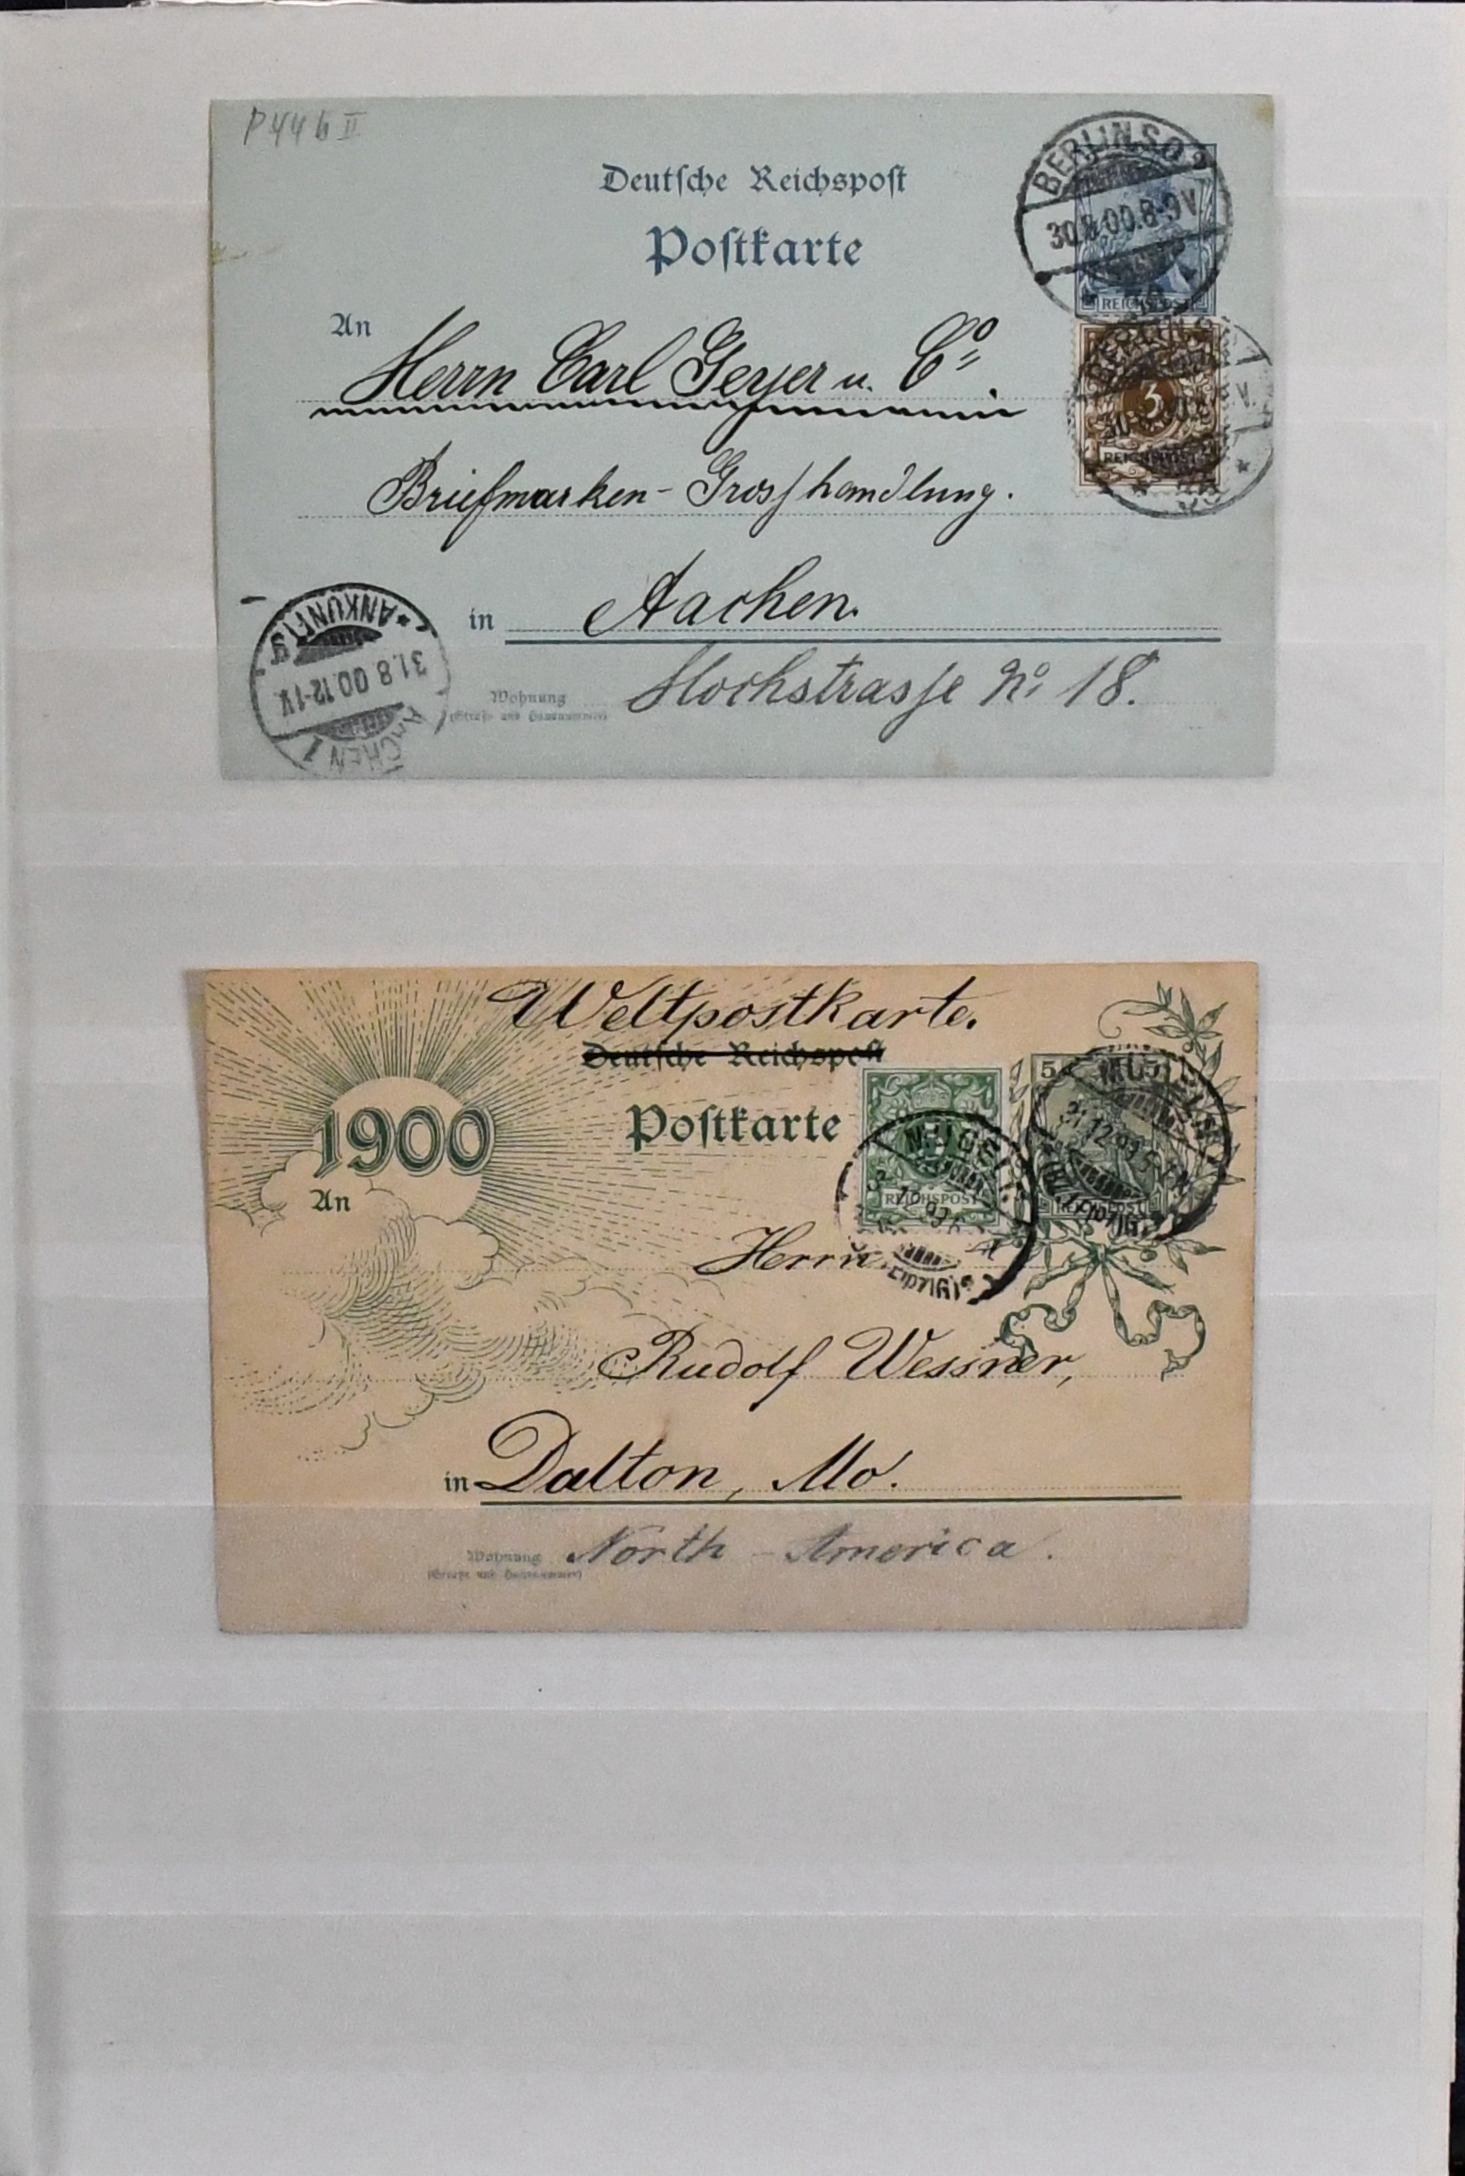 P44b II
Deutsche Reichspost
Postkarte
BERLIN.S.O.
30.8.00.8-9V
REICHSPOST
An
Herrn Carl Geyer u. Co.
3
REICHSPOST
Briefmarken-Grosshandlung.
in Aachen.
Wohnung
(Straße und Hausnummer)
Hochstrasse No 18.
*ANKUNFT*
31.8.00.12-1V
AACHEN 1
Weltpostkarte.
Deutsche Reichspost
1900
Postkarte
5
REICHSPOST
REICHSPOST
31.12.99.5-
(LEIPZIG)
An
Herrn
Rudolf Wessner,
in Dalton, Mo.
Wohnung
(Straße und Hausnummer)
North-America.